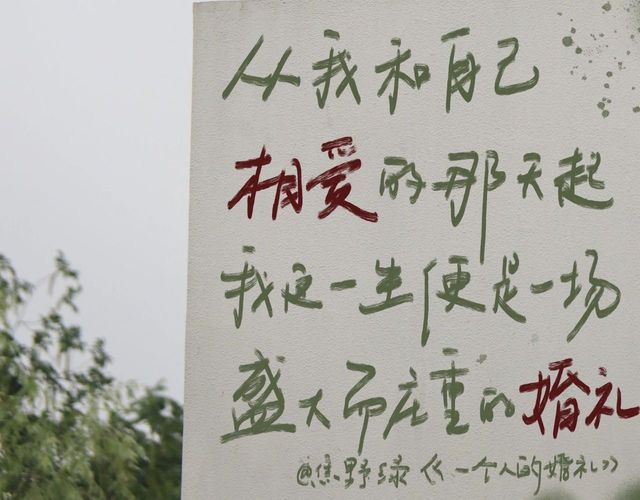 从我和自己
相爱的那天起
我这一生便是一场
盛大而庄重的婚礼
@焦野绿《一个人的婚礼》